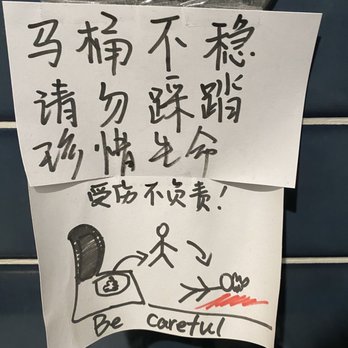 马桶不稳
请勿踩踏
珍惜生命
受伤不负责!
Be careful